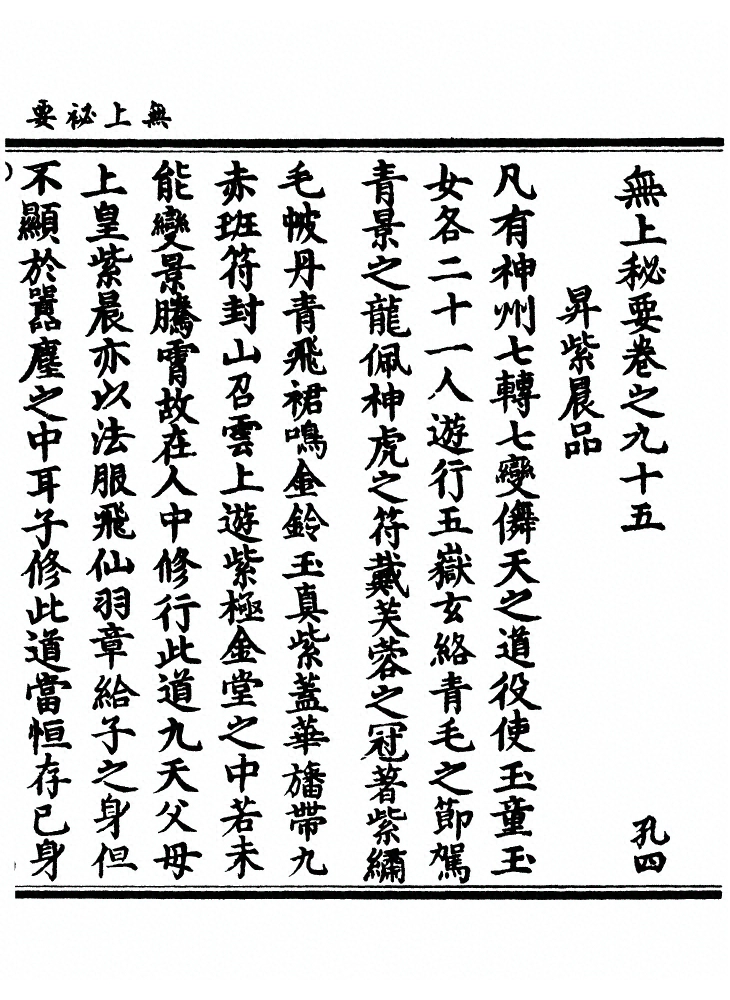 無上祕要
無上秘要卷之九十五　孔四
昇紫晨品
凡有神州七轉七變儛天之道役使玉童玉
女各二十一人遊行五嶽玄絡青毛之節駕
青景之龍佩神虎之符戴芙蓉之冠著紫繡
毛帔丹青飛裙鳴金鈴玉真紫蓋華旛帶九
赤班符封山召雲上遊紫極金堂之中若未
能變景騰霄故在人中修行此道九天父母
上皇紫晨亦以法服飛仙羽章給子之身但
不顯於囂塵之中耳子修此道當恒存已身